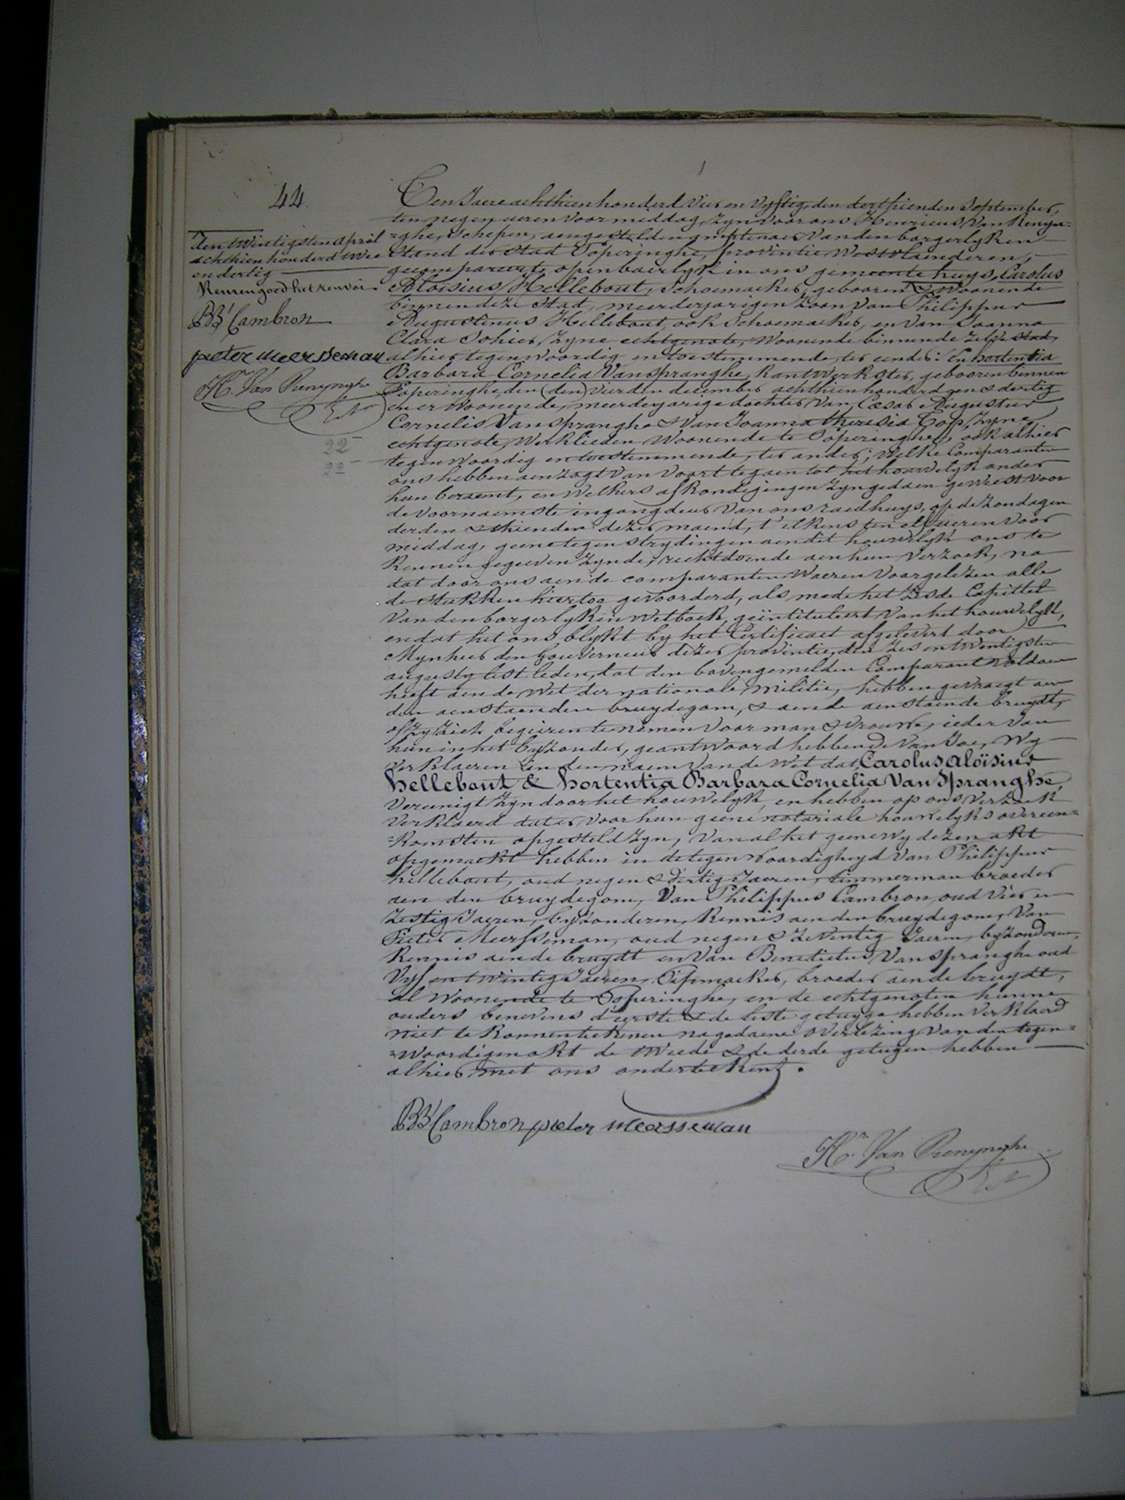 44.
den twintigsten april
achthienhonderd twee
en dertig
Kennen goed het renvoi.
BB Cambron
pieter meersseman
Hri Van Renynghe
22
22
Den Jaere achthien honderd vier en vyftig, den derthienden September,
ten negen ueren voormiddag, zyn voor ons Henricus Van Renyn-
ghe, Schepen, aengesteld Van den borgerlyken
stand der Stad Poperinghe, provintie Westvlaenderen,
gecompareert, openbaerlyk in ons gemeente huys, Carolus
Aloïsius Hellebout, Schoemaeker, geboren & Woonende
binnen deze Stad, meerderjarigen zoon van Philippus
Augustinus Hellebout, ook Schoemaeker, en van Joanna
Clara Sohier, zyne echtgenote, Woonende binnen de zelfde stad,
alhier tegenwoordig en toestemmende, ter eender: en hortentia
Barbara Cornelia Van Spranghe, kantwerkster, geboren binnen
Poperinghe, den (den) vierden december achthien honderd een & dertig
en er Woonende, meerderjarige dochter van Cæsar Augustin
Cornelis Van Spranghe & Van Joanna theresia Top, zyne
echtgenote, Werklieden Woonende te Poperinghe, ook alhier
tegenwoordig en toestemmende, ter ander; Welke Comparanten
ons hebben aenzogt van voort te gaen tot het houwelyk onder
hun beraemt, en Welkers afkondigingen zyn gedaen geweest voor
de voornaemste ingangdeur van ons raedhuys, op de zondagen
derden & thienden dezer maend, t'elkens ten elf ueren voor
middag, geene tegenstrydingen aen dit houwelyk ons te
kennen gegeven zynde, rechtdoende aen hun verzoek, na
dat door ons aen de comparanten Waeren voorgelezen alle
de stukken hier toe gevoorderd, als mede het zesde Capittel
van den borgerlyken Wetboek, geïntituleert Van het houwelyk,
en dat het ons blykt by het Certificaet afgelevert door
Mynheer den Gouverneur dezer provintie, den zes en twintigsten
augusty lest leden, dat den bovengemelden Comparant voldaen
heeft aen de Wet der nationale Militie, hebben gevraegt aen
den aenstaenden bruydegom, & aen de aenstaende bruydt,
of zy zich begeeren te nemen voor man & Vrouwe, ieder van
hun in het byzonder, geantwoord hebbende Van Jae, Wy
verklaeren in den naem van de Wet dat Carolus Aloïsius
hellebout & hortentia Barbara Cornelia Van Spranghe,
vereenigt zyn door het houwelyk, en hebben op ons verzoek
verklaerd dat er voor hun geene notariale houwelyks overeen-
komsten opgesteld zyn, Van al het geene Wy dezen akt
opgemaekt hebben in de tegenwoordigheyd van Philippus
hellebout, oud negen & dertig Jaeren, timmerman broeder
aen den bruydegom, Van Philippus Cambron, oud vier en
zestig Jaeren, byzonderen, kennis aen den bruydegom, Van
Pieter Meersseman, oud negen & zeventig Jaeren, byzonderen,
kennis aen de bruydt en Van Benedictus Van Spranghe oud
vyf en twintig Jaeren, broeder aen de bruydt,
al Woonende te Poperinghe, en de echtgenoten hunne
ouders benevens d'eerste & de leste getuyge hebben verklaerd
niet te konnen tekenen na gedaene overlezing van den tegen-
woordigen akt de tweede & de derde getuygen hebben
alhier met ons ondertekent.
BB Cambron pieter meersseman
Hri Van Renynghe